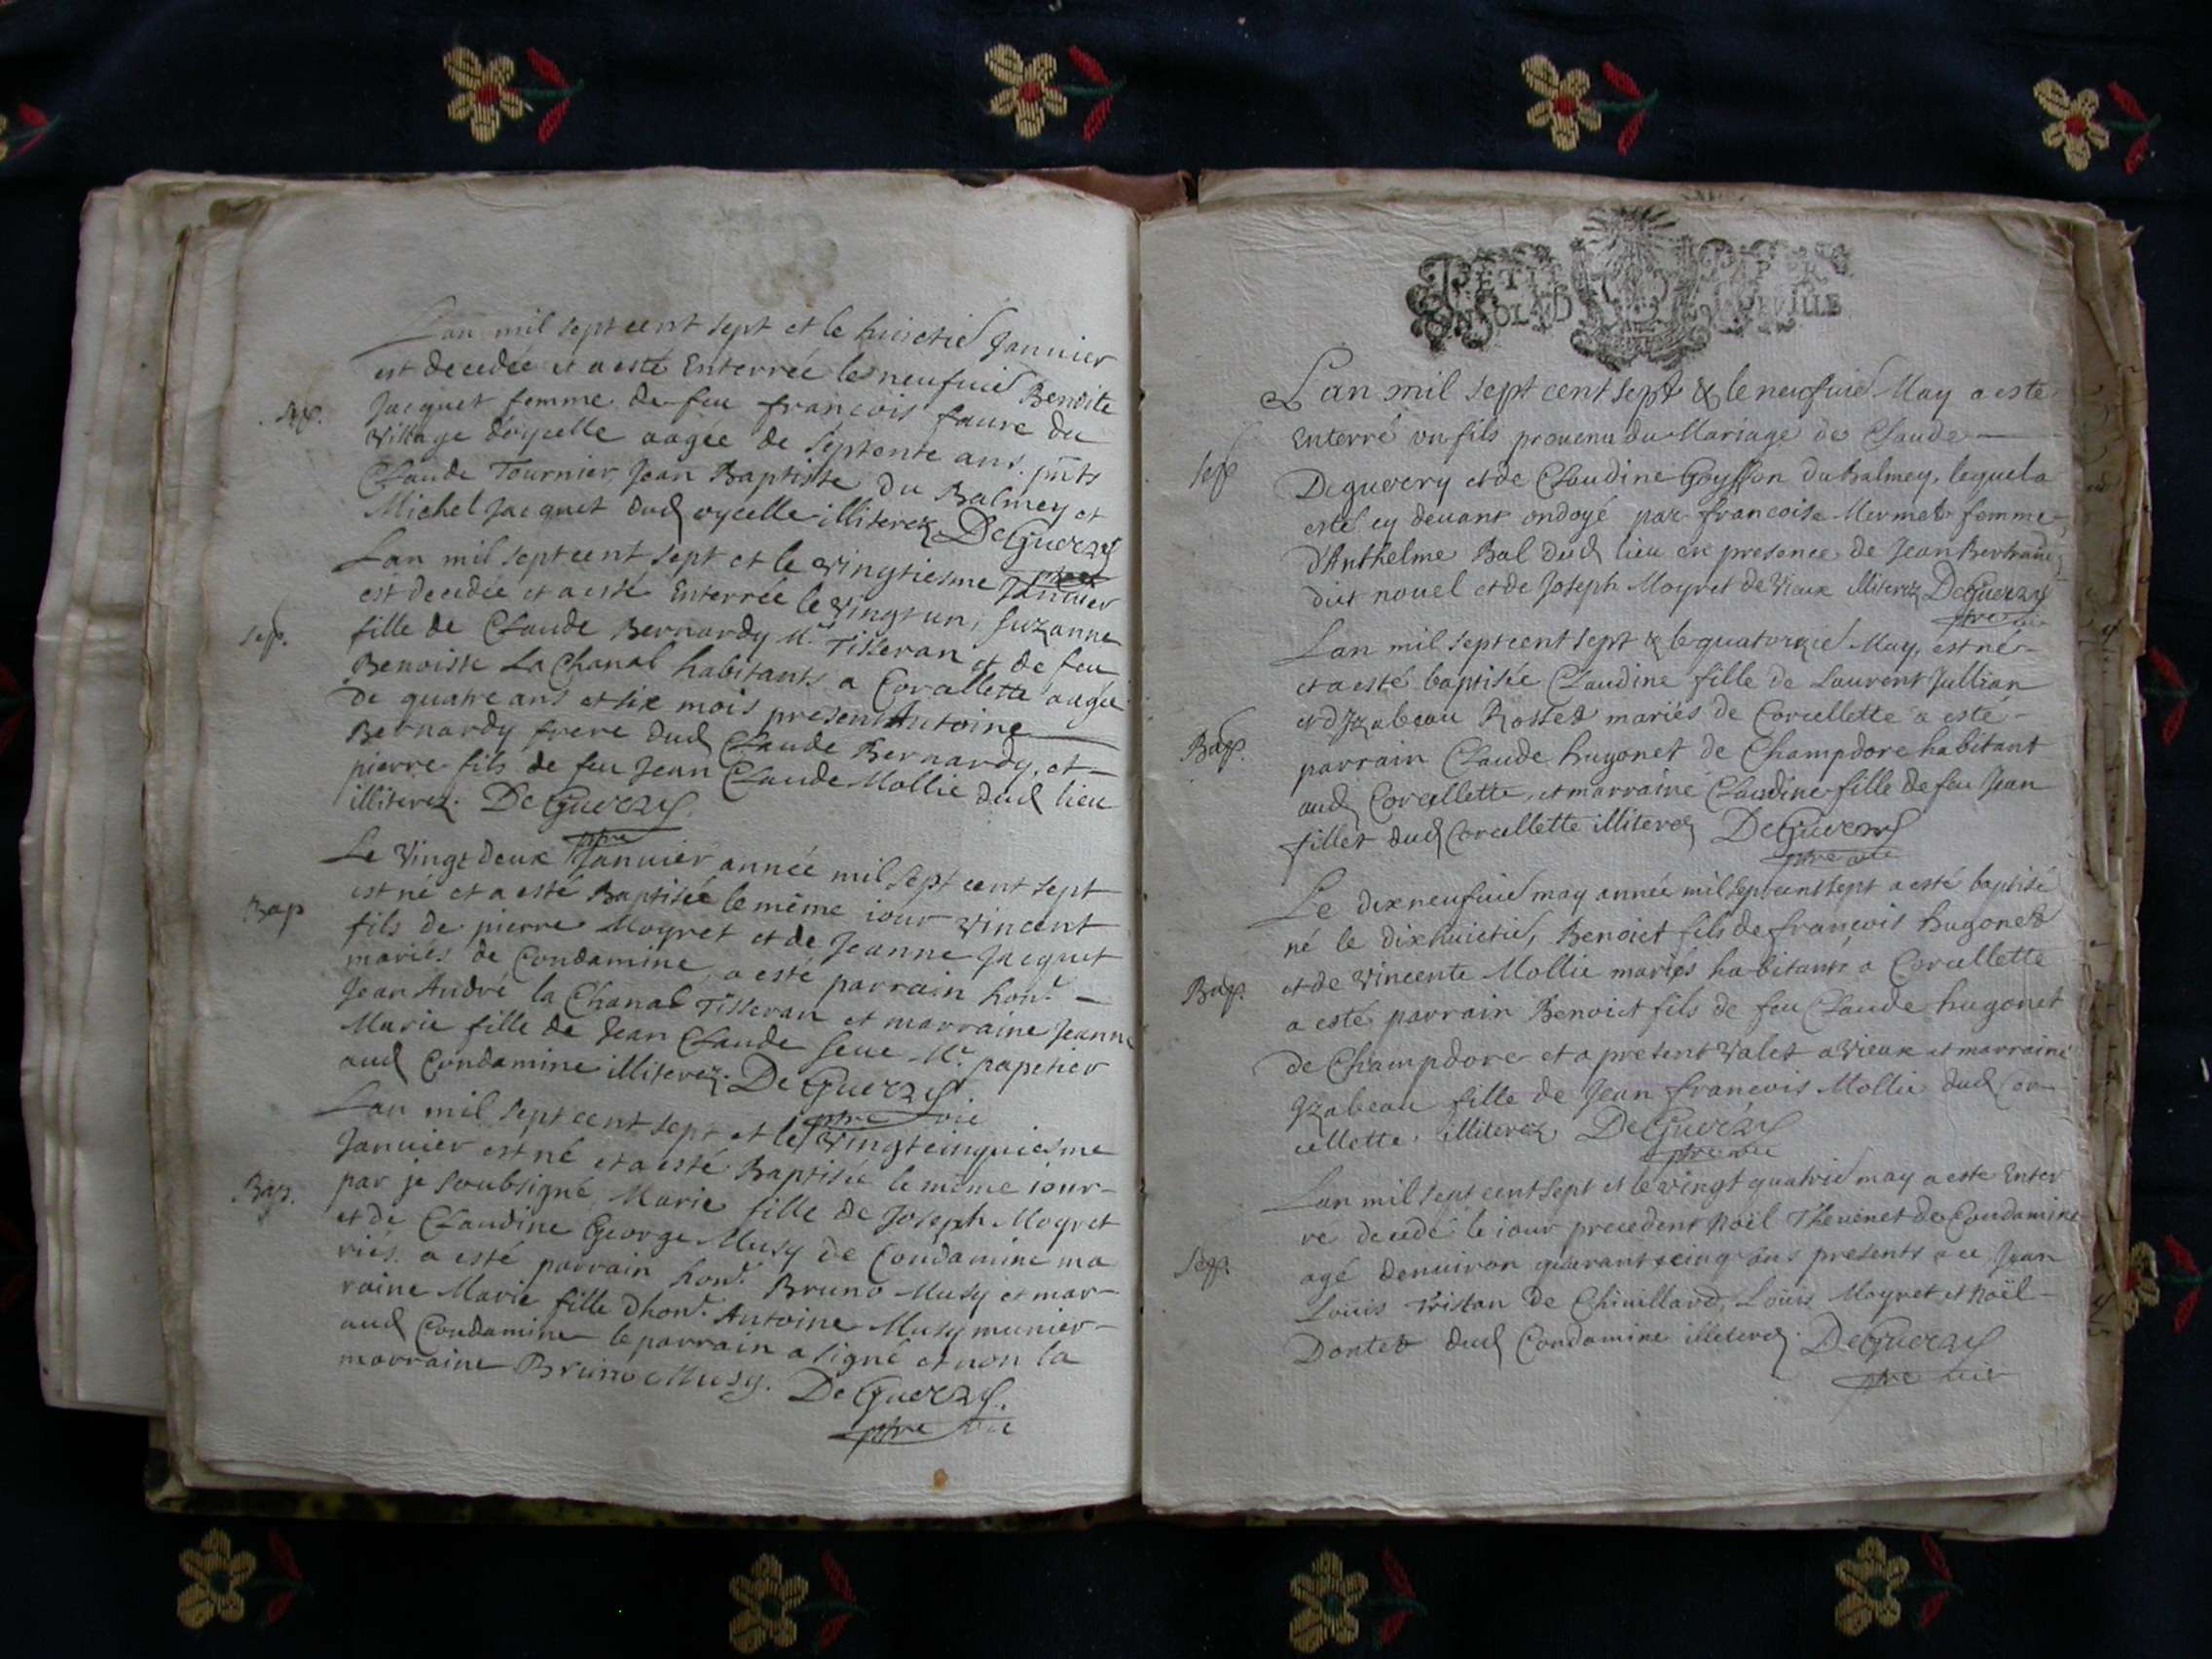 Lan mil sept cent sept et le huictie Januier
est decedée et a esté Enterrée le neufuie Benoite
Sep. Jacquet femme de feu francois faure du
village doycelle aagée de septente ans. pnts
Claude Tournier, Jean Baptiste du Balmey et
Michel Jacquet dud oycelle illiterez DeGuerry
ptre
Lan mil sept cent sept et le vingtiesme Januier
est decedée et a esté Enterrée le vingt un, Suzanne
Sep. fille de Claude Bernardy Mr. Tisseran et de feu
Benoiste La Chanal habitants a Corcellette aagée
de quatre ans et six mois present Antoine
Bernardy frere dud Claude Bernardy, et
pierre fils de feu Jean Claude Mollie dud lieu
illiterez. DeGuerry
ptre
Le Vingt deux Januier année mil sept cent sept
est né et a esté Baptisée le même iour vincent
Bap fils de pierre Moyret et de Jeanne Jacquet
mariés de Condamine, a esté parrain hon.
Jean André la Chanal Tisseran et marraine Jeanne
Marie fille de Jean Claude Seue Mr. papetier
aud Condamine illiterez. DeGuerry
ptre vie
Lan mil sept cent sept et le vingt cinquiesme
Januier est né et a esté Baptisée le même iour
Bap. par je soubsigné, Marie fille de Joseph Moyret
et de Claudine George Musy de Condamine ma
riés. a esté parrain hon. Bruno Musy et mar-
raine Marie fille dhon. Antoine Musy munier
aud Condamine le parrain a signé et non la
marraine Bruno Musy. DeGuerry.
ptre vie
PETIT PAPIER
Lan mil sept cent sept & le neufuie May a este
Enterré un fils prouenu du Mariage de Claude
Sep Deguerry et de Claudine Goyffon du Balmey, lequel a
esté cy deuant ondoyé par francoise Mermet femme
d'Anthelme Bal dud lieu en presence de Jean Bertrand
dit nouel et de Joseph Moyret de Vieux illiterez DeGuerry
ptre vie
Lan mil sept cent sept & le quatorzie May, est né
et a esté baptisée Claudine fille de Laurent Jullian
et d'Izabeau Rosset mariés de Corcellette a esté
Bap. parrain Claude hugonet de Champdore habitant
aud Corcellette, et marraine Claudine fille de feu Jean
fillet dud Corcellette illiterez DeGuerry
ptre vie
Le dixneufuie may année mil sept cent sept a esté baptisé
né le dixhuictie, Benoict fils de francois hugonet
Bap. et de vincente Mollie mariés habitants a Corcellette
a esté parrain Benoict fils de feu Claude hugonet
de Champdore et a present valet a vieux et marraine
Izabeau fille de Jean francois Mollie dud Cor
cellette. illiterez DeGuerry
ptre vie
Lan mil sept cent sept et le vingt quatrie may a este Enter
re decedé le iour precedent noël Theuenet de Condamine
Sep. agé denuiron quarante cinq ans presents a ce Jean
Louis Tristan de Chiuillard, Louis Moyret et noël
Dontet dud Condamine illiterez. DeGuerry
ptre vie